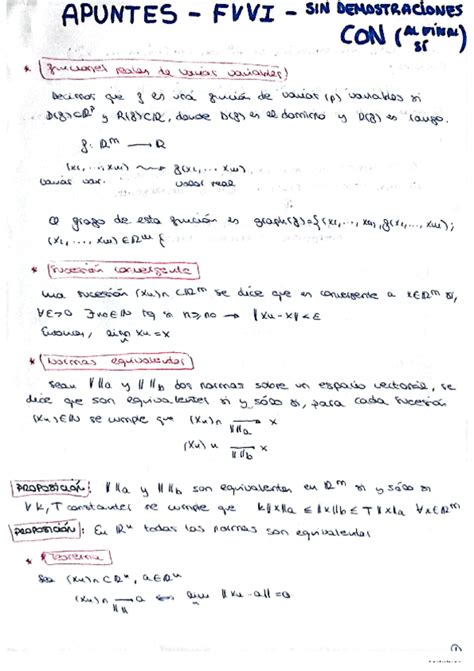 APUNTES - FVVI - SIN DEMOSTRACIONES
CON (AL FINAL SÍ)
* Funciones reales de varias variables)
Decimos que f es una función de varias (p) variables si
D(f)⊂ℝᵖ y R(f)⊂ℝ, donde D(f) es el dominio y D(f) es rango.
f: ℝᵐ → ℝ
(x₁, ..., xₘ) ⇝ f(x₁, ..., xₘ)
varias var. valor real
O grafo de esta función es graph(f)={(x₁, ..., xₘ, f(x₁, ..., xₘ);
(x₁, ..., xₘ) ∈ ℝᵐ {
* Sucesión convergente
Una sucesión (xₙ)ₙ ⊂ ℝᵐ se dice que es convergente a x∈ℝᵐ si,
∀ε>0 ∃n₀∈ℕ tq si n≥n₀ → ‖xₙ-x‖<ε
Entonces, lim xₙ = x
* Normas equivalentes
Sean ‖ ‖a y ‖ ‖b dos normas sobre un espacio vectorial, se
dice que son equivalentes si y sólo si, para cada sucesión
(xₙ)∈ℕ se cumple que (xₙ)ₙ →‖ ‖a x
(xₙ)ₙ →‖ ‖b x
PROPOSICIÓN: ‖ ‖a y ‖ ‖b son equivalentes en ℝᵐ si y sólo si
∀ k, T constantes se cumple que k‖x‖a ≤ ‖x‖b ≤ T‖x‖a ∀x∈ℝᵐ
PROPOSICIÓN: En ℝⁿ todas las normas son equivalentes
* Teorema
Sea (xₙ)ₙ⊂ℝⁿ, a∈ℝⁿ
(xₙ)ₙ →‖ ‖ a ⟺ lim ‖xₙ-a‖=0
1